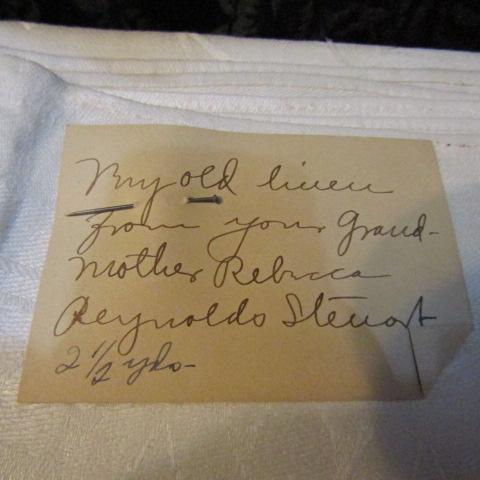 My old linen
from your Grand-
mother Rebecca
Reynolds Stewart
2 1/2 yds-